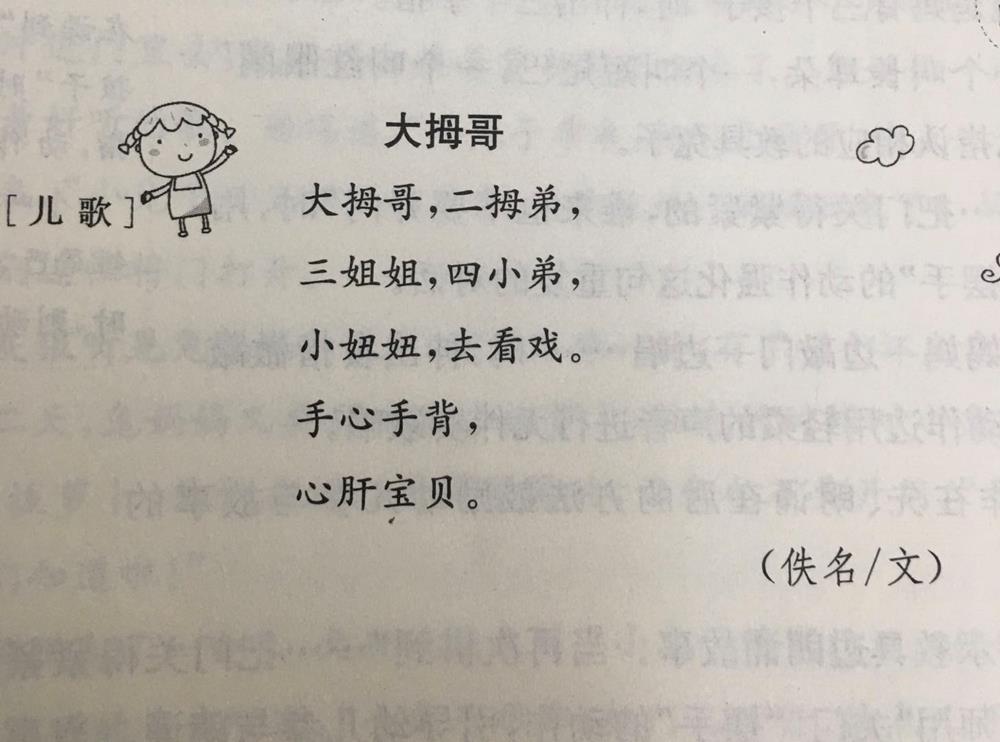 大拇哥
[儿歌]
大拇哥,二拇弟,
三姐姐,四小弟,
小妞妞,去看戏。
手心手背,
心肝宝贝。
(佚名/文)